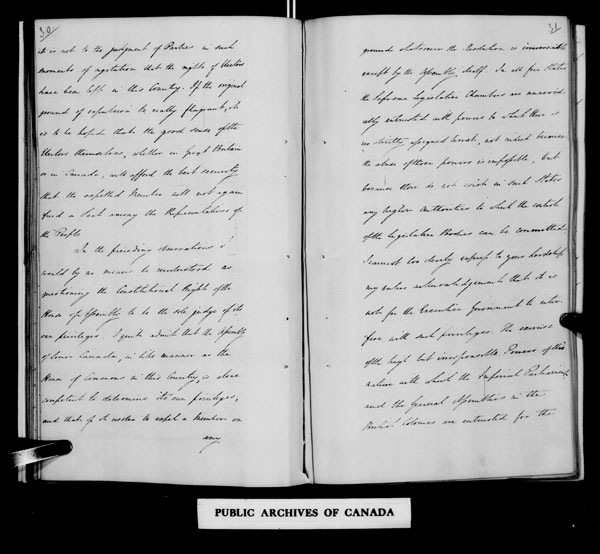 30
it is not to the judgment of Parties in such
moments of agitation that the rights of Electors
have been left in this Country. If the original
ground of expulsion be really flagrant, it
is to be hoped that the good sense of the
Electors themselves, whether in Great Britain
or in Canada, will afford the best security
that the expelled Member will not again
find a Seat among the Representatives of
the People
In the preceding observations I
would by no means be understood as
questioning the Constitutional Right of the
House of Assembly to be the sole judge of its
own privileges. I quite admit that the Assembly
of Lower Canada, in like manner as the
House of Commons in this Country, is alone
competent to determine its own privileges,
and that if it resolve to expel a Member on
any
31
ground whatsoever the Resolution is irreversible
except by the Assembly itself. In all free States
the Supreme Legislative Chambers are unavoid-
ably entrusted with powers to which there is
no strictly assigned limit, not indeed because
the abuse of those powers is impossible, but
because there do not exist in such States
any higher Authorities to which the control
of the Legislative Bodies can be committed
I cannot too clearly express to your Lordship
my entire acknowledgement that it is
not for the Executive Government to inter-
fere with such privileges. The exercise
of the high but irresponsible Powers of this
nature with which the Imperial Parliament,
and the General Assemblies in the
British Colonies are entrusted for the
PUBLIC ARCHIVES OF CANADA